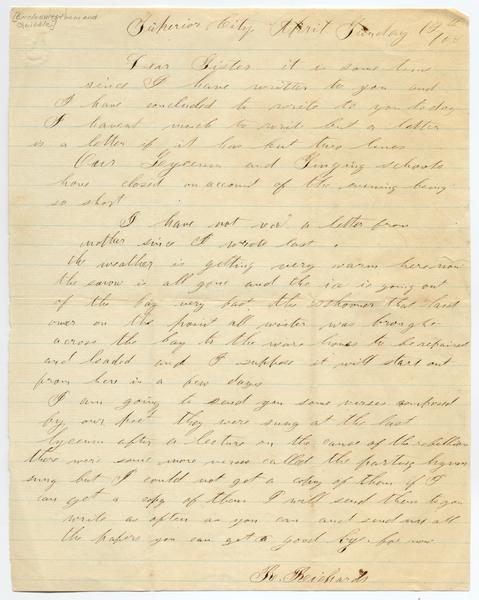 Superior City, April Sunday 17th
Dear Sister it is some time
since I have written to you and
I have concluded to write to you to day
I havent much to writ but a letter
is a letter if it has but two lines
Our Lyceum and Singing schools
have closed on account of the evening being
so short
I have not rcd a letter from
mother since I wrote last.
the weather is getting very warm here now
the snow is all gone and the ice is going out
of the bay very fast the schooner that laid
over on the point all winter was brought
across the bay to the ware house to be repaired
and loaded and I suppose it will start out
from here in a few days
I am going to send you some verses composed
by our poet they were sung at the last
lyceum after a lecture on the cause of the rebellion
there were some more verses called the parting hymn
sung but I could not get a copy of them if I
can get a copy of them I will send them to you
write as often as you can and send me all
the papers you can get good bye for now
Richards